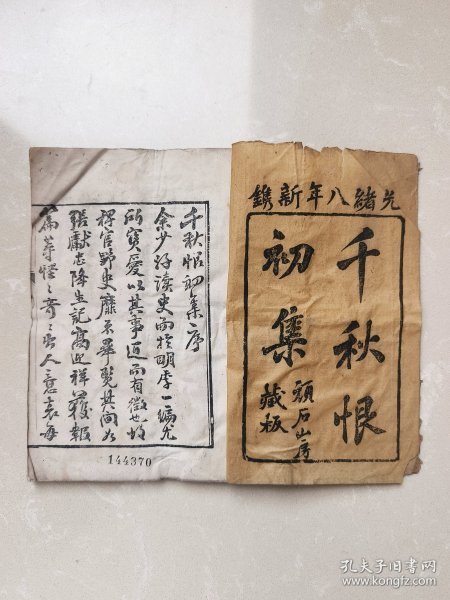 光緒八年新鐫
千秋恨
初集
頑石山房
藏板
千秋恨初集序
余少好读史而於明季一編尤
所寳愛以其事近而有徵也故
稗官野史靡不畢覽其間如
張獻忠降生記高迎祥獲報
篇等怪之奇之出人意表每
144370
孔夫子旧书网
www.kongfz.com